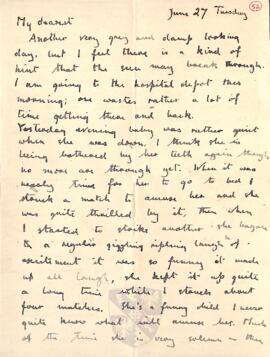 June 27 Tuesday
52
My dearest
Another very grey and damp looking
day, but I feel there is a kind of
hint that the sun may break through.
I am going to the hospital depot this
morning; one wastes rather a lot of
time getting there and back.
Yesterday evening baby was rather quiet
when she was down. I think she is
being bothered by her teeth again though
no more are through yet. When it was
nearly time for her to go to bed I
struck a match to amuse her and she
was quite thrilled by it, then when
I started to strike another she began
a regular giggling rippling laugh of
excitement it was so funny it made
us all laugh, she kept it up quite
a long time while I struck about
four matches. She's a funny child I never
quite know what will amuse her. Much
of the time she very solemn - then